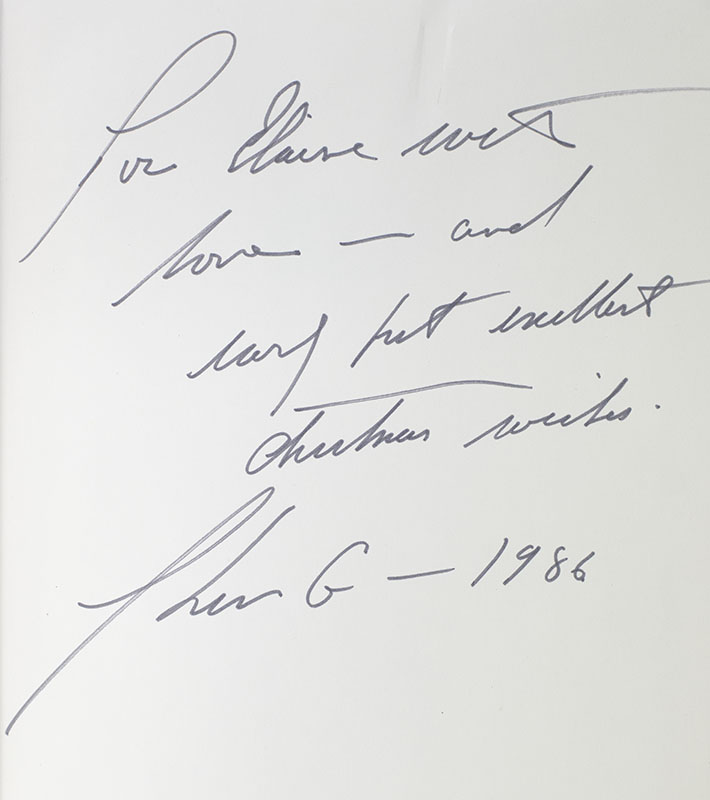 For Elaine with
love — and
very best excellent
Christmas wishes.
G — 1986